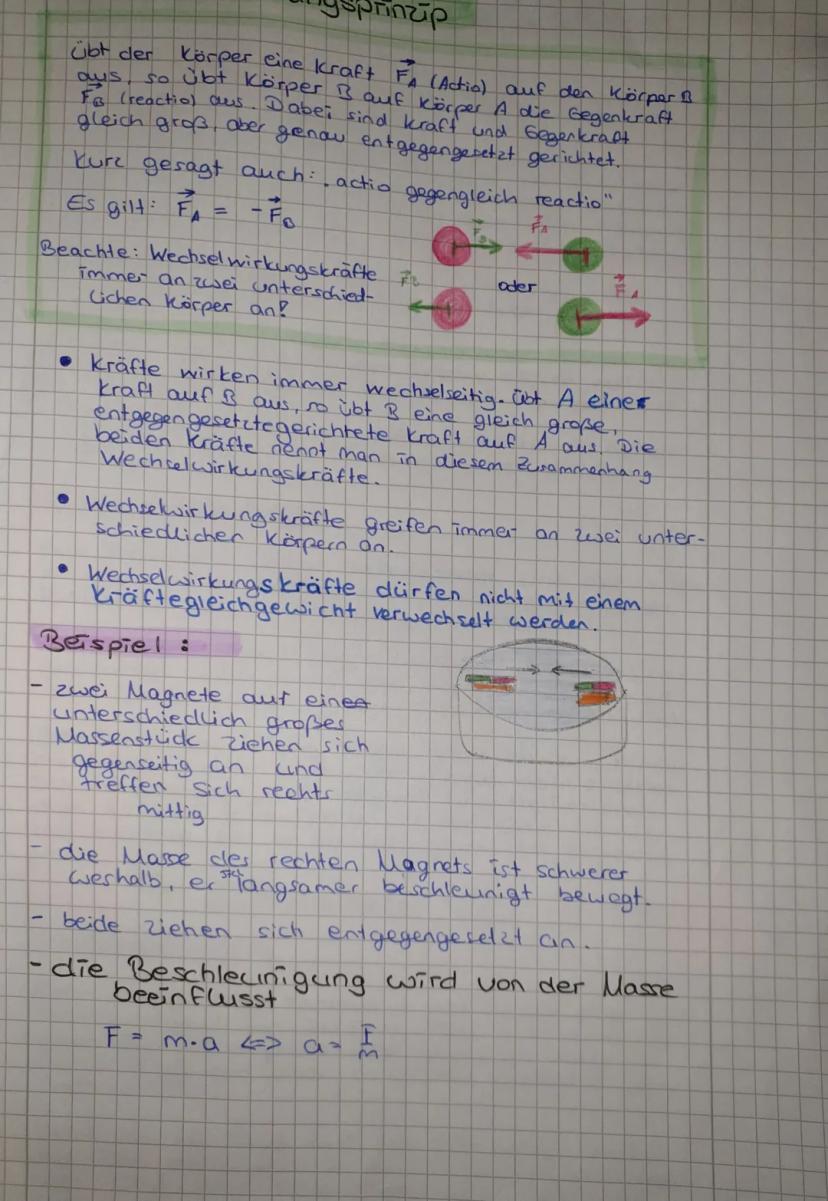 ngsprinzip
übt der Körper eine Kraft F⃗A (Actio) auf den Körper B
aus, so übt Körper B auf Körper A die Gegenkraft
F⃗B (reactio) aus. Dabei sind Kraft und Gegenkraft
gleich groß, aber genau entgegengesetzt gerichtet.
Kurz gesagt auch: "actio gegengleich reactio"
Es gilt: F⃗A = -F⃗B
Beachte: Wechselwirkungskräfte
immer an zwei unterschied-
lichen Körper an!
F⃗B F⃗A
oder
F⃗B F⃗A
• Kräfte wirken immer wechselseitig. übt A eine
Kraft auf B aus, so übt B eine gleich große,
entgegengesetztegerichtete Kraft auf A aus. Die
beiden Kräfte nennt man in diesem Zusammenhang
Wechselwirkungskräfte.
• Wechselwirkungskräfte greifen immer an zwei unter-
schiedlichen Körpern an.
• Wechselwirkungskräfte dürfen nicht mit einem
Kräftegleichgewicht verwechselt werden.
Beispiel:
- zwei Magnete auf eine
unterschiedlich großes
Massenstück ziehen sich
gegenseitig an und
treffen sich rechts
mittig
- die Masse des rechten Magnets ist schwerer
weshalb, er sich langsamer beschleunigt bewegt.
- beide ziehen sich entgegengesetzt an.
- die Beschleunigung wird von der Masse
beeinflusst
F = m·a <=> a = F/m